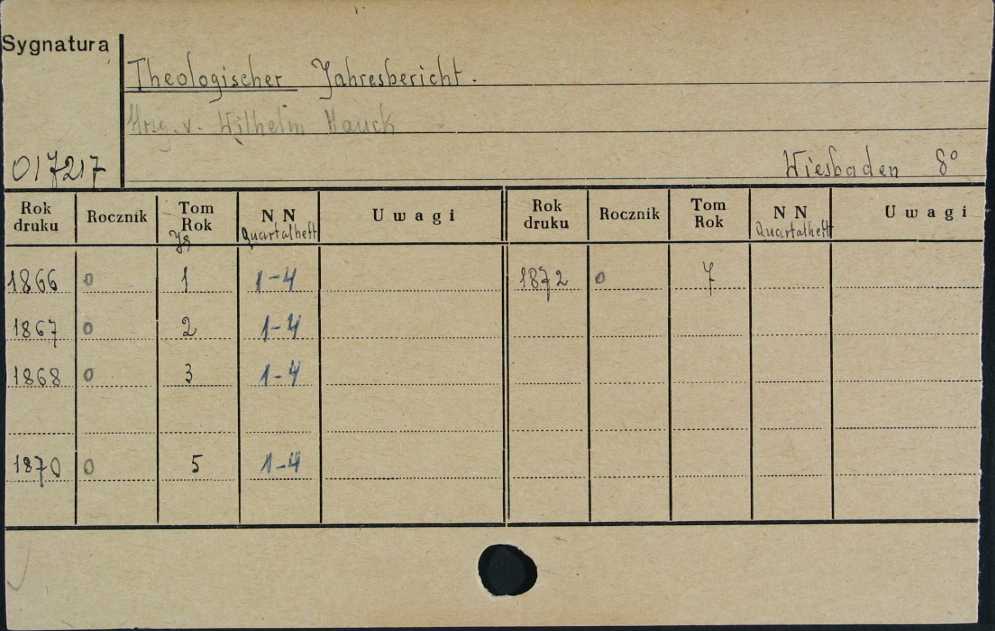 Sygnatura
Theologischer Jahresbericht.
Hrsg. v. Wilhelm Hauck
017217
Wiesbaden 8°
Rok druku Rocznik Tom Rok Jg NN Quartalheft Uwagi Rok druku Rocznik Tom Rok NN Quartalheft Uwagi
1866 o 1 1-4 1872 o 7
1867 o 2 1-4
1868 o 3 1-4
1870 o 5 1-4